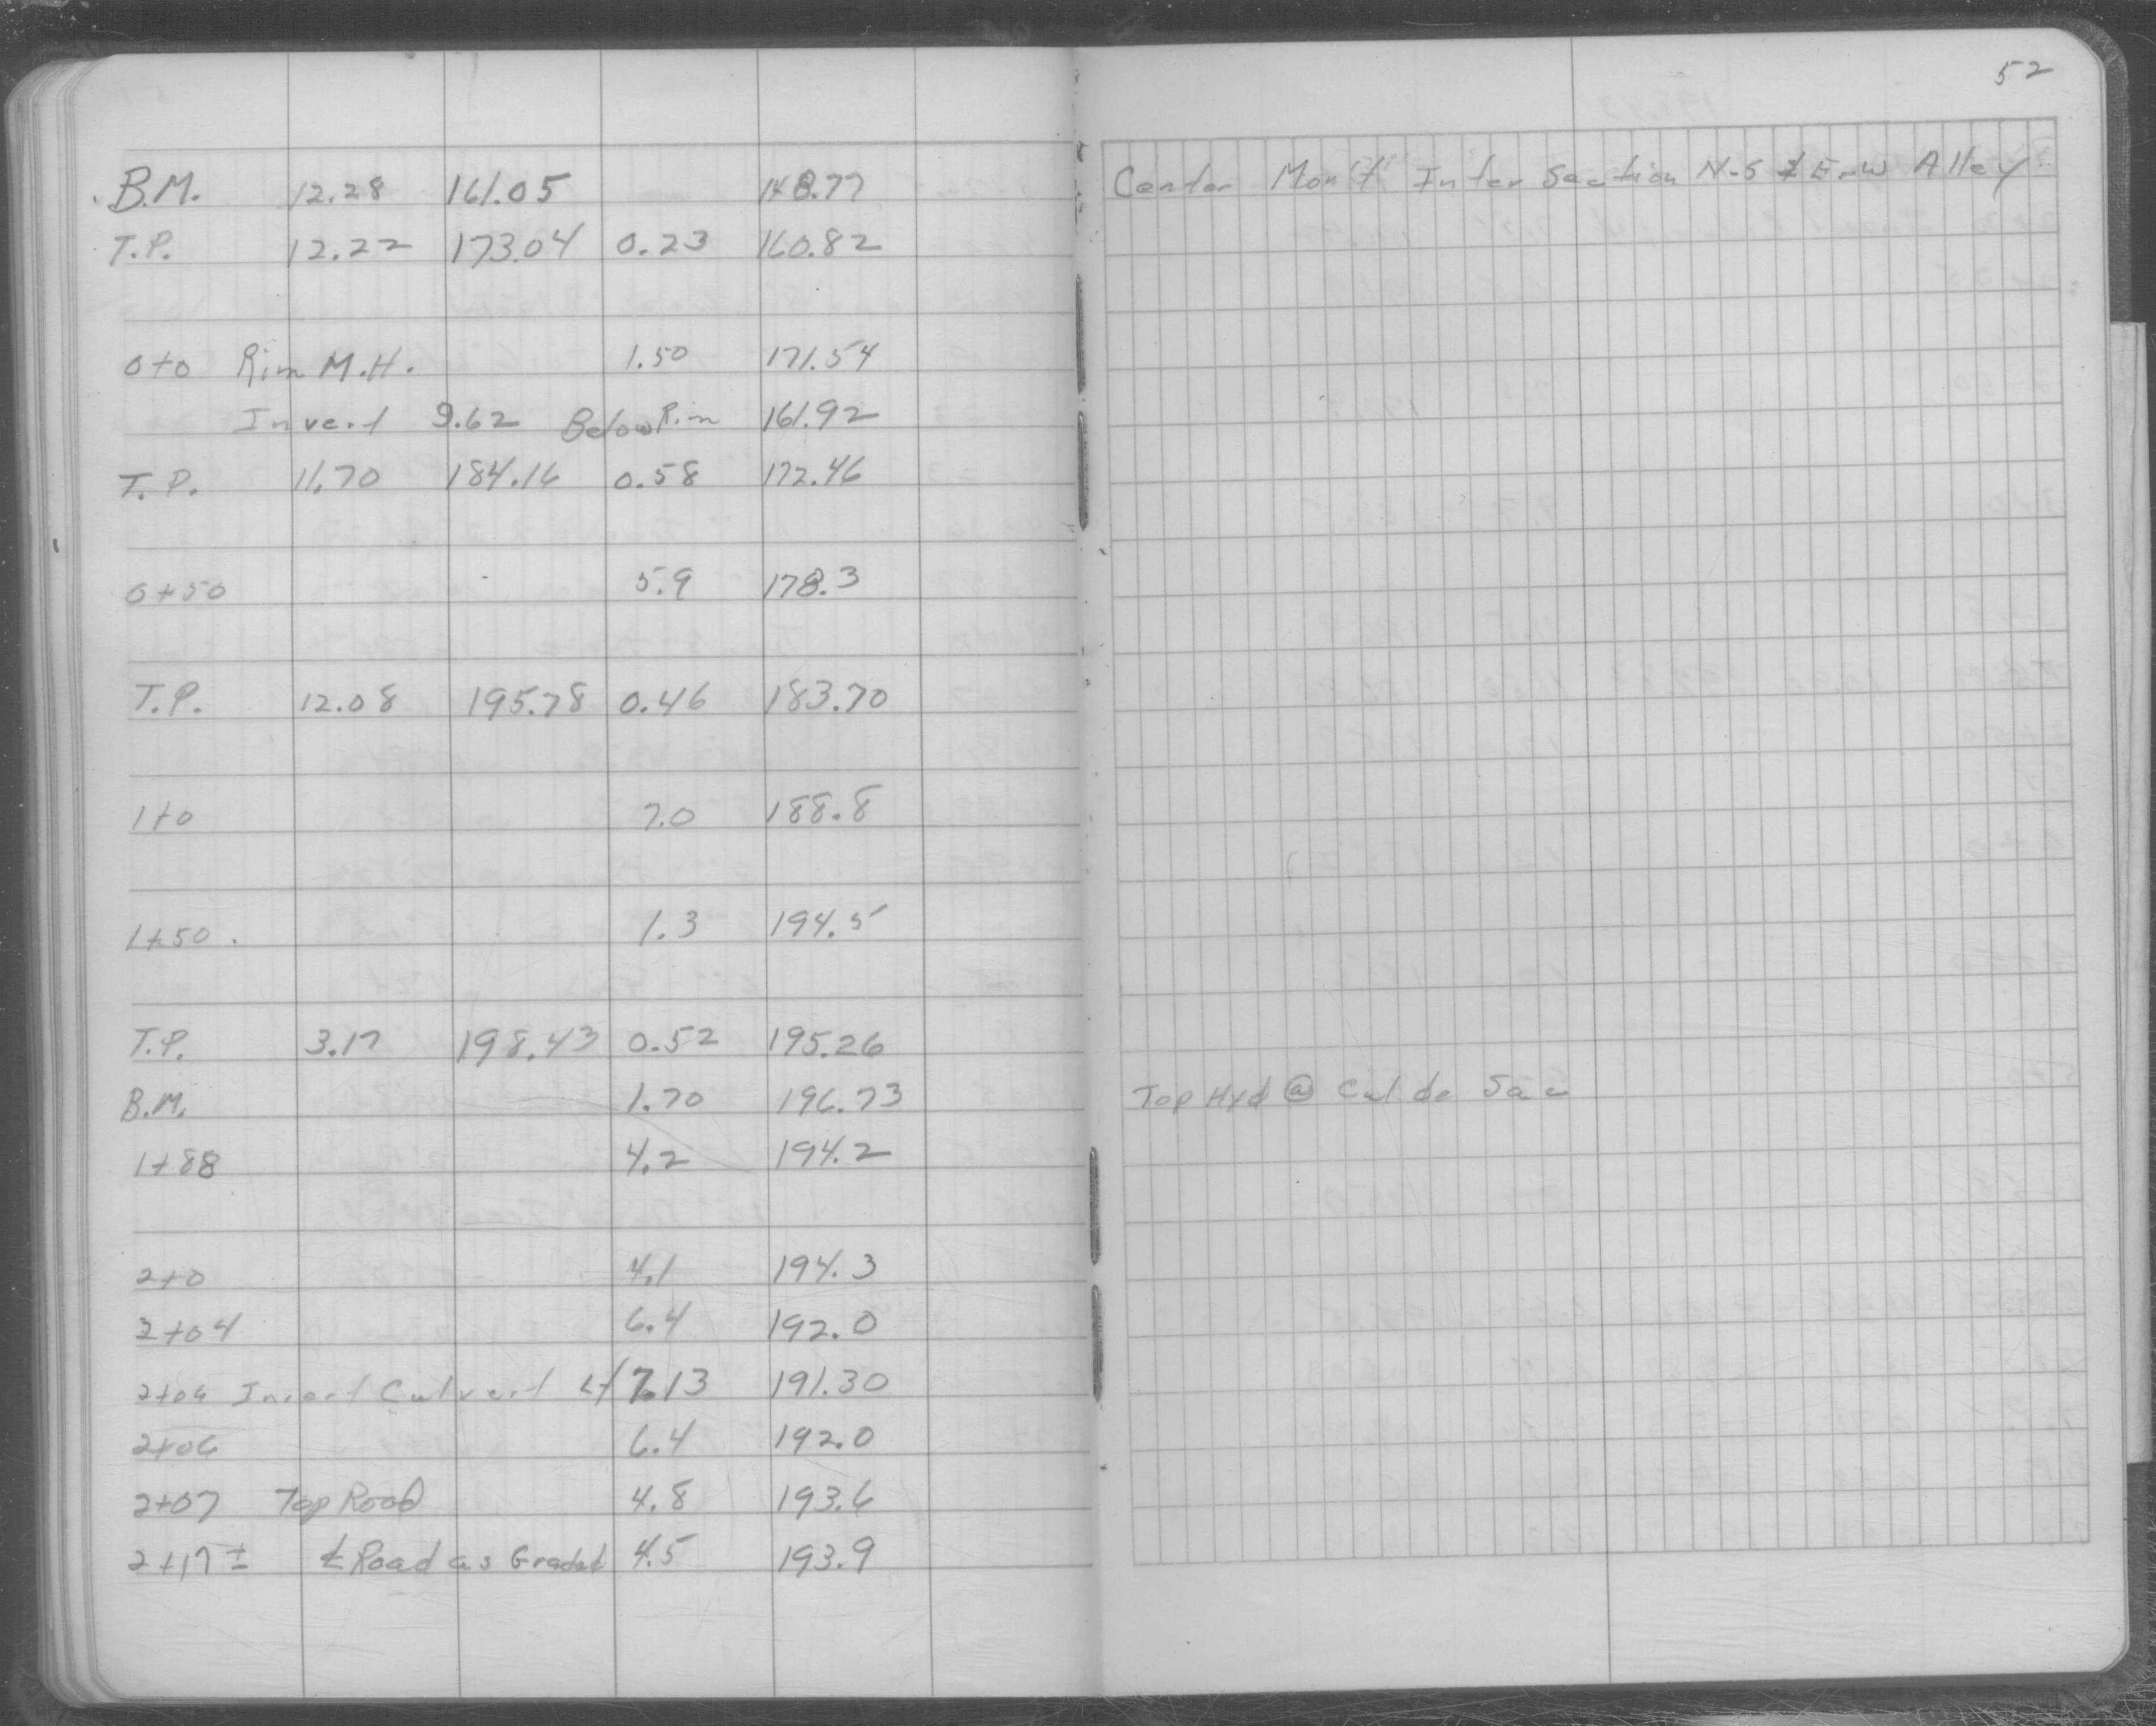 52
B.M. 12.28 161.05 148.77 Center Mon't Inter Section N-S & E-W Alley
T.P. 12.22 173.04 0.23 160.82
0+0 Rim M.H. 1.50 171.54
Invert 9.62 Below Rim 161.92
T.P. 11.70 184.16 0.58 172.46
0+50 5.9 178.3
T.P. 12.08 195.78 0.46 183.70
1+0 7.0 188.8
1+50 1.3 194.5
T.P. 3.17 198.43 0.52 195.26
B.M. 1.70 196.73 Top Hyd @ Cul de Sac
1+88 4.2 194.2
2+0 4.1 194.3
2+04 6.4 192.0
2+06 Invert Culvert Lt 7.13 191.30
2+06 6.4 192.0
2+07 Top Road 4.8 193.6
2+17± ℄ Road as Graded 4.5 193.9